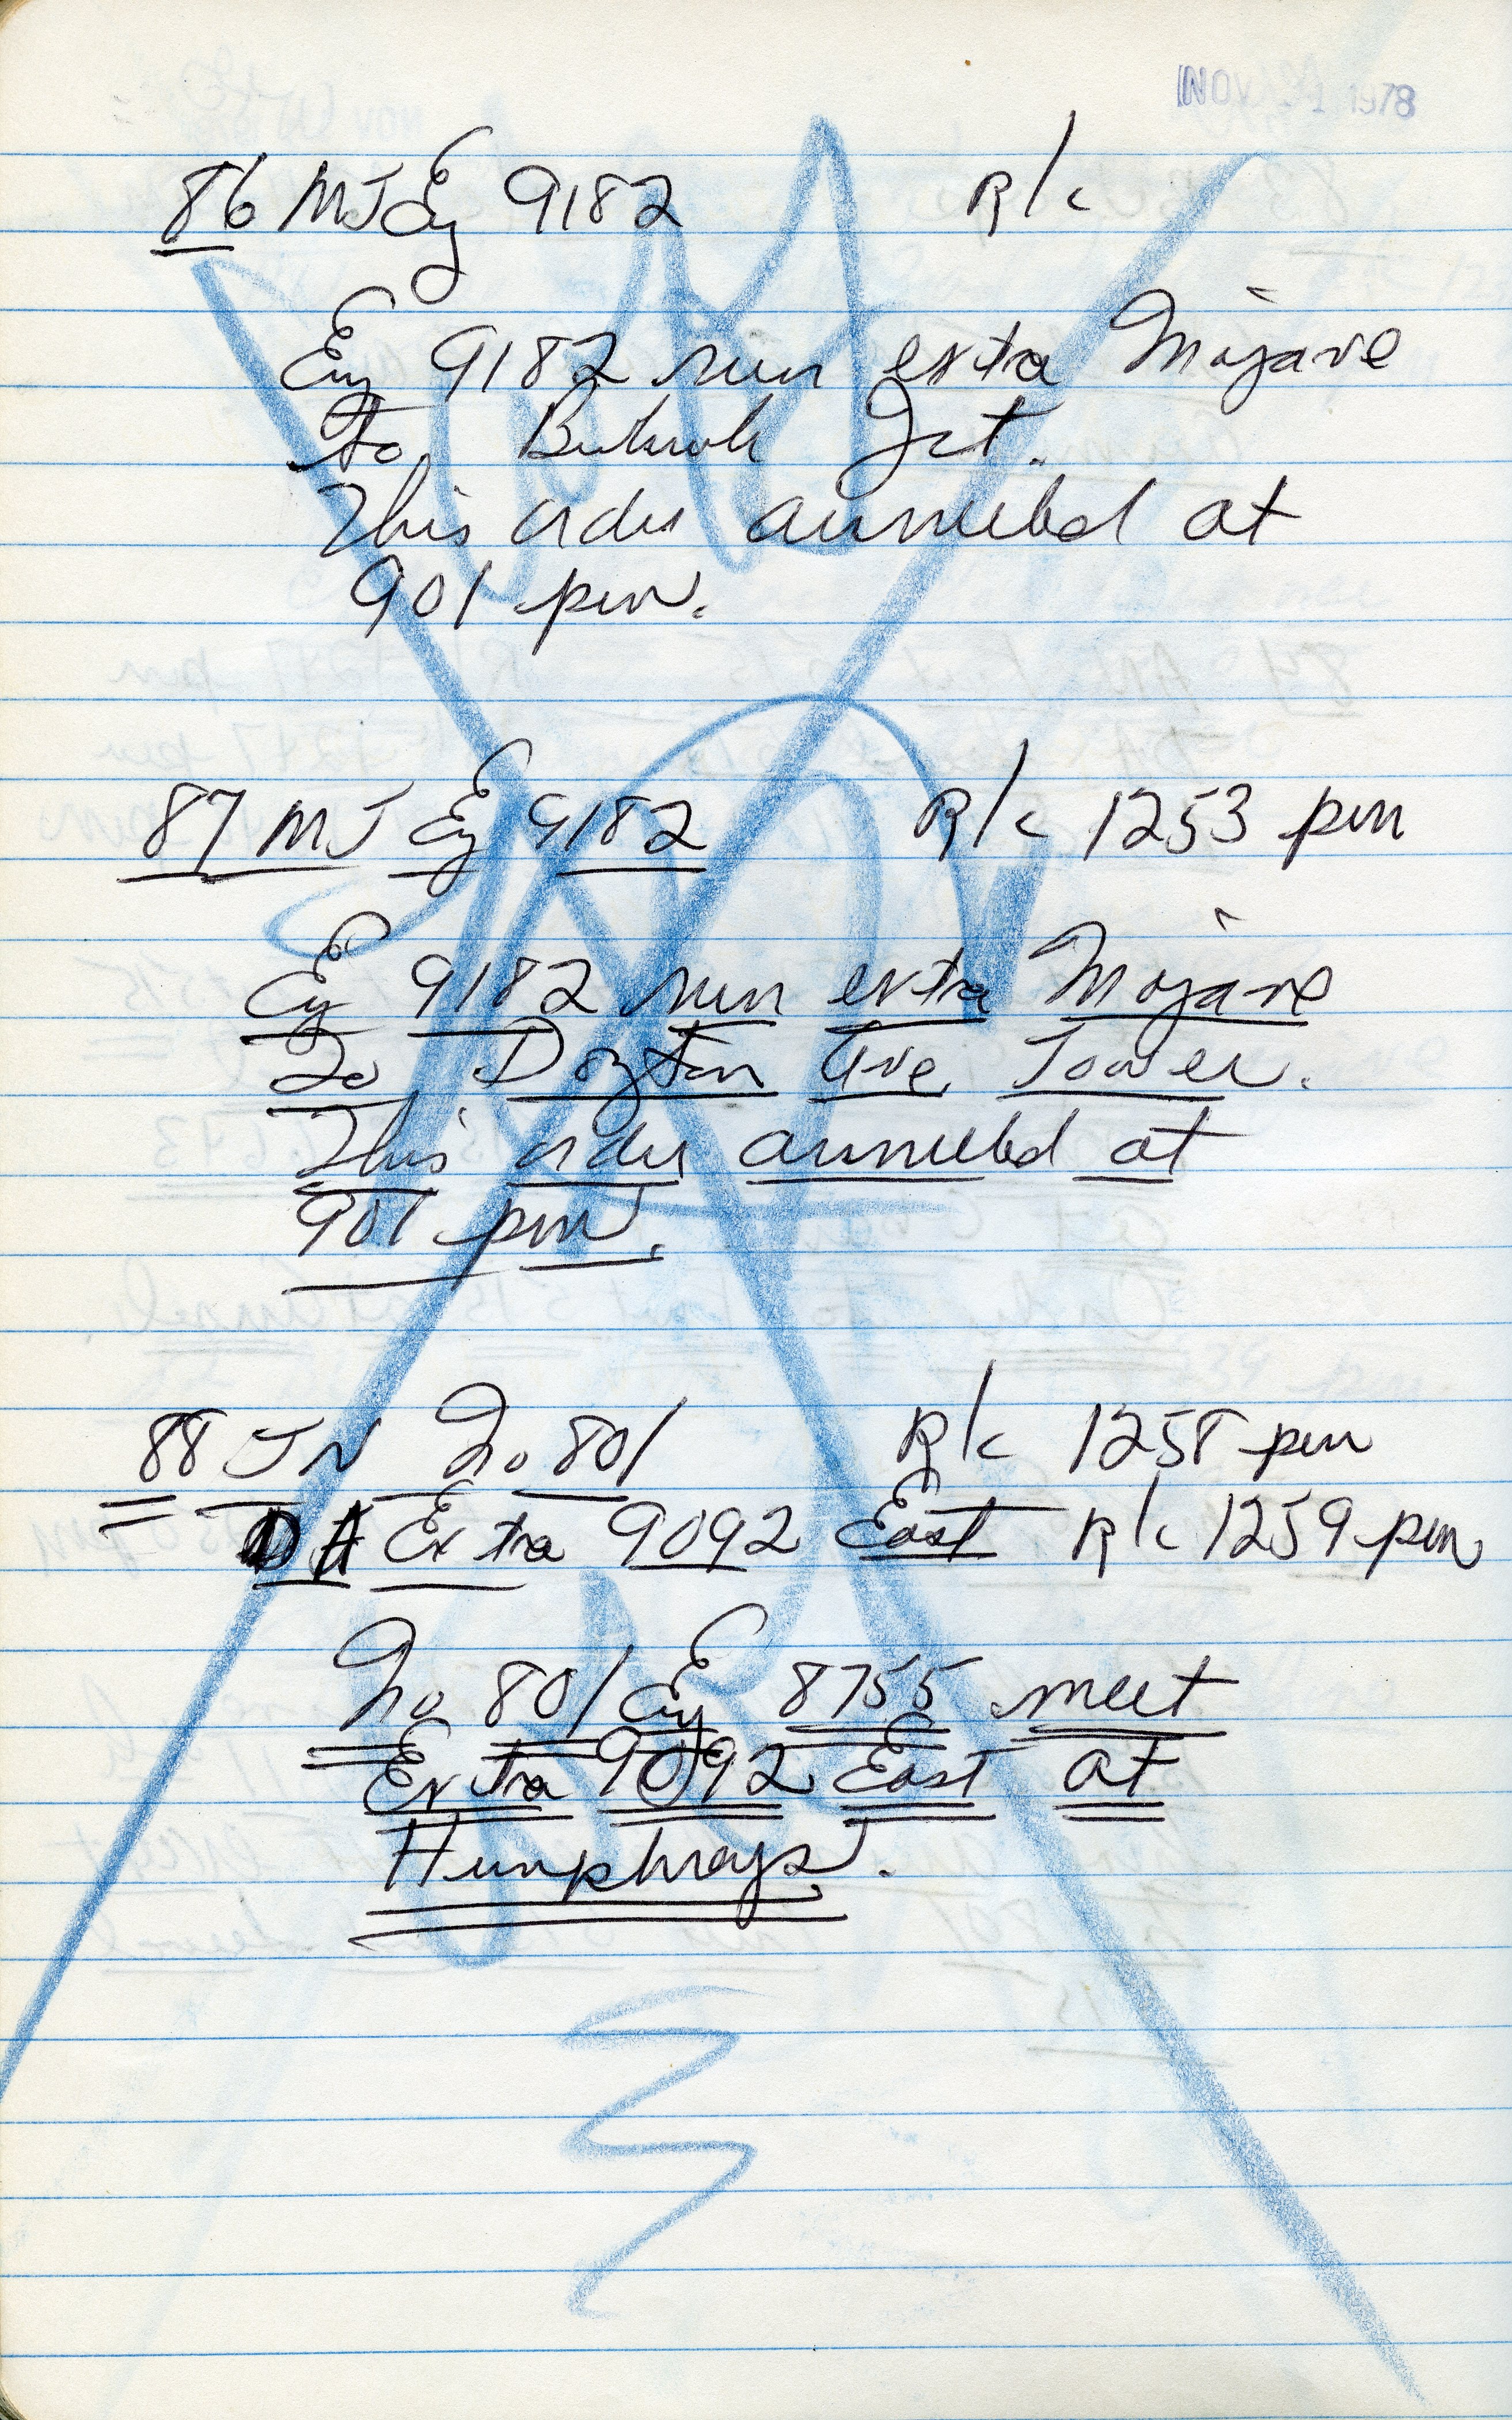 NOV 1 1978
86 MJ Eng 9182 R/c
Eng 9182 run extra Mojave
to Burbank Jct.
This order annulled at
901 pm.
87 MJ Eng 9182 R/c 1253 pm
Eng 9182 run extra Mojave
To Dayton Ave Tower.
This order annulled at
901 pm.
88 JN No 801 R/c 1258 pm
DA Extra 9092 East R/c 1259 pm
No 801 Eng 8755 meet
Extra 9092 East at
Humphreys.